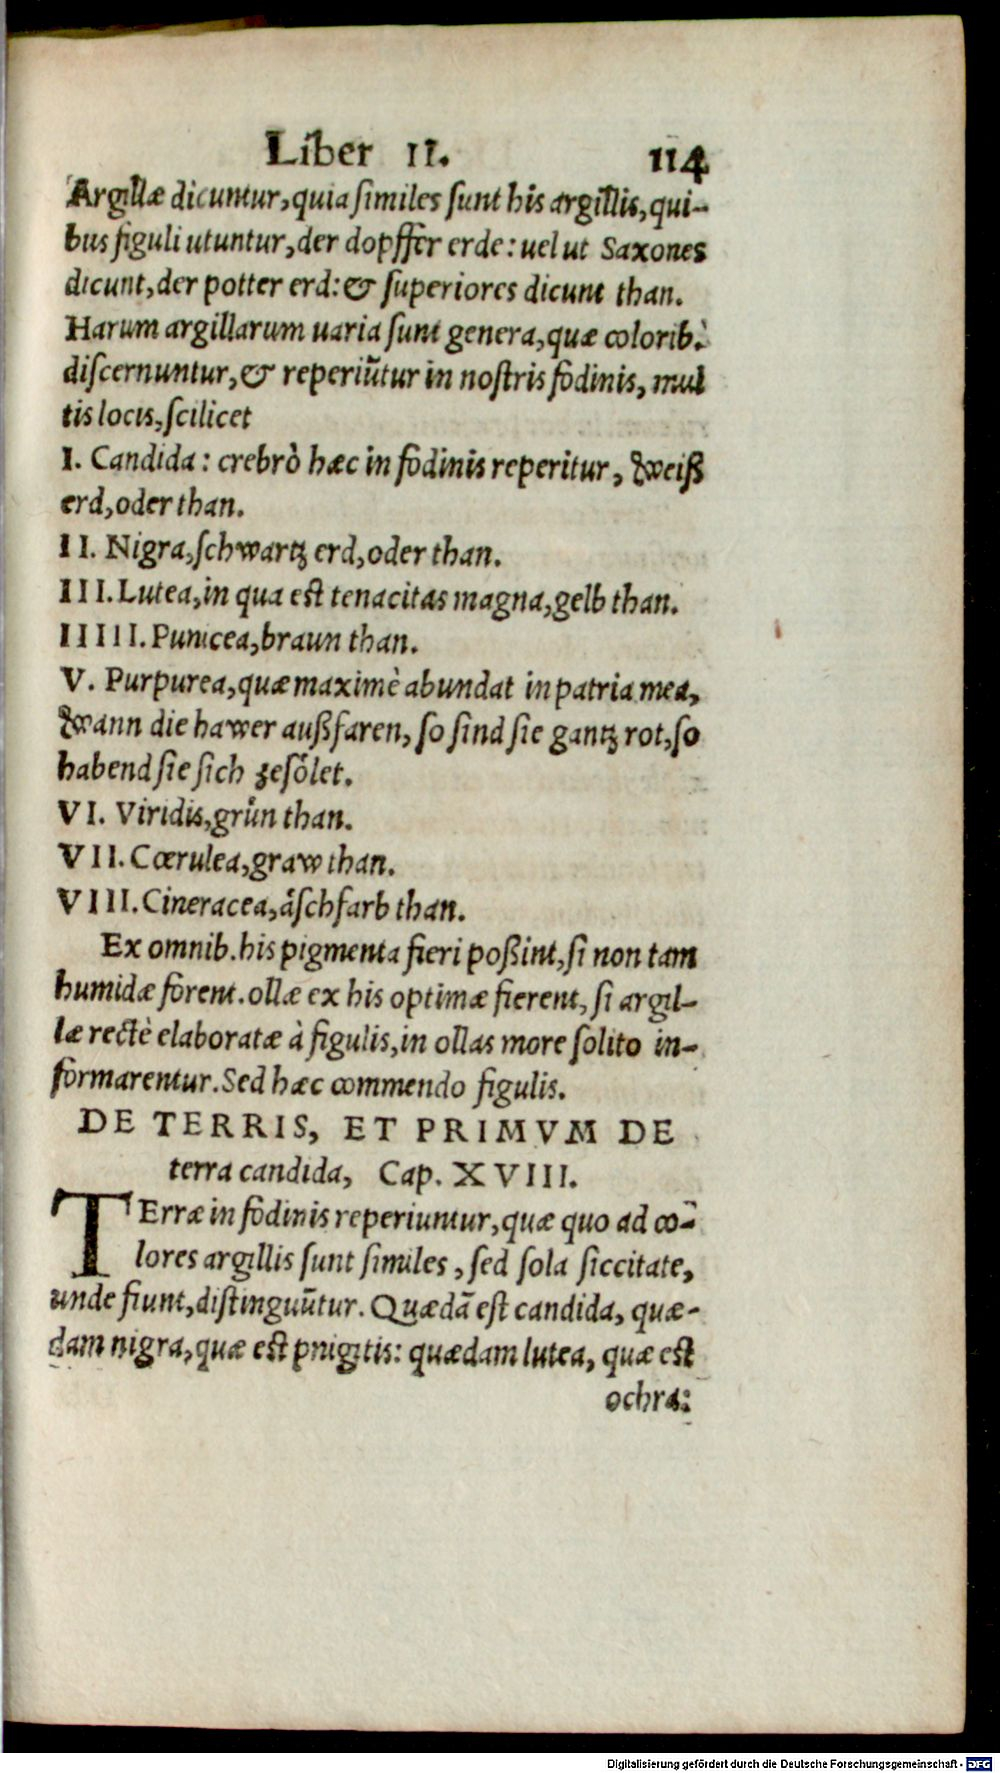 Liber II. 114
Argillæ dicuntur, quia similes sunt his argillis, qui-
bus figuli utuntur, der dopffer erde: uel ut Saxones
dicunt, der potter erd: & superiores dicunt than.
Harum argillarum uaria sunt genera, quæ colorib.
discernuntur, & reperiũtur in nostris fodinis, mul
tis locis, scilicet
I. Candida: crebrò hæc in fodinis reperitur, weiß
erd, oder than.
II. Nigra, schwartz erd, oder than.
III. Lutea, in qua est tenacitas magna, gelb than.
IIIII. Punicea, braun than.
V. Purpurea, quæ maximè abundat in patria mea,
wann die hawer außfaren, so sind sie gantz rot, so
habend sie sich gesŏlet.
VI. Viridis, grůn than.
VII. Cœrulea, graw than.
VIII. Cineracea, åschfarb than.
Ex omnib. his pigmenta fieri poßint, si non tam
humidæ forent. ollæ ex his optimæ fierent, si argil-
læ rectè elaboratæ à figulis, in ollas more solito in-
formarentur. Sed hæc commendo figulis.
DE TERRIS, ET PRIMVM DE
terra candida, Cap. XVIII.
TErræ in fodinis reperiuntur, quæ quo ad co-
lores argillis sunt similes, sed sola siccitate,
unde fiunt, distinguũtur. Quædã est candida, quæ-
dam nigra, quæ est pnigitis: quædam lutea, quæ est
ochra:
Digitalisierung gefördert durch die Deutsche Forschungsgemeinschaft - DFG